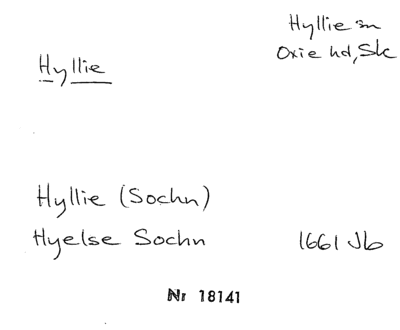 Hyllie sn
Oxie hd, Sk
Hyllie
Hyllie (Sochn)
Hyelse Sochn 1661 Jb
Nr 18141